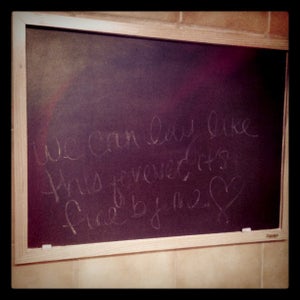 we can lay like
this forever it's
fine by me.. ♡